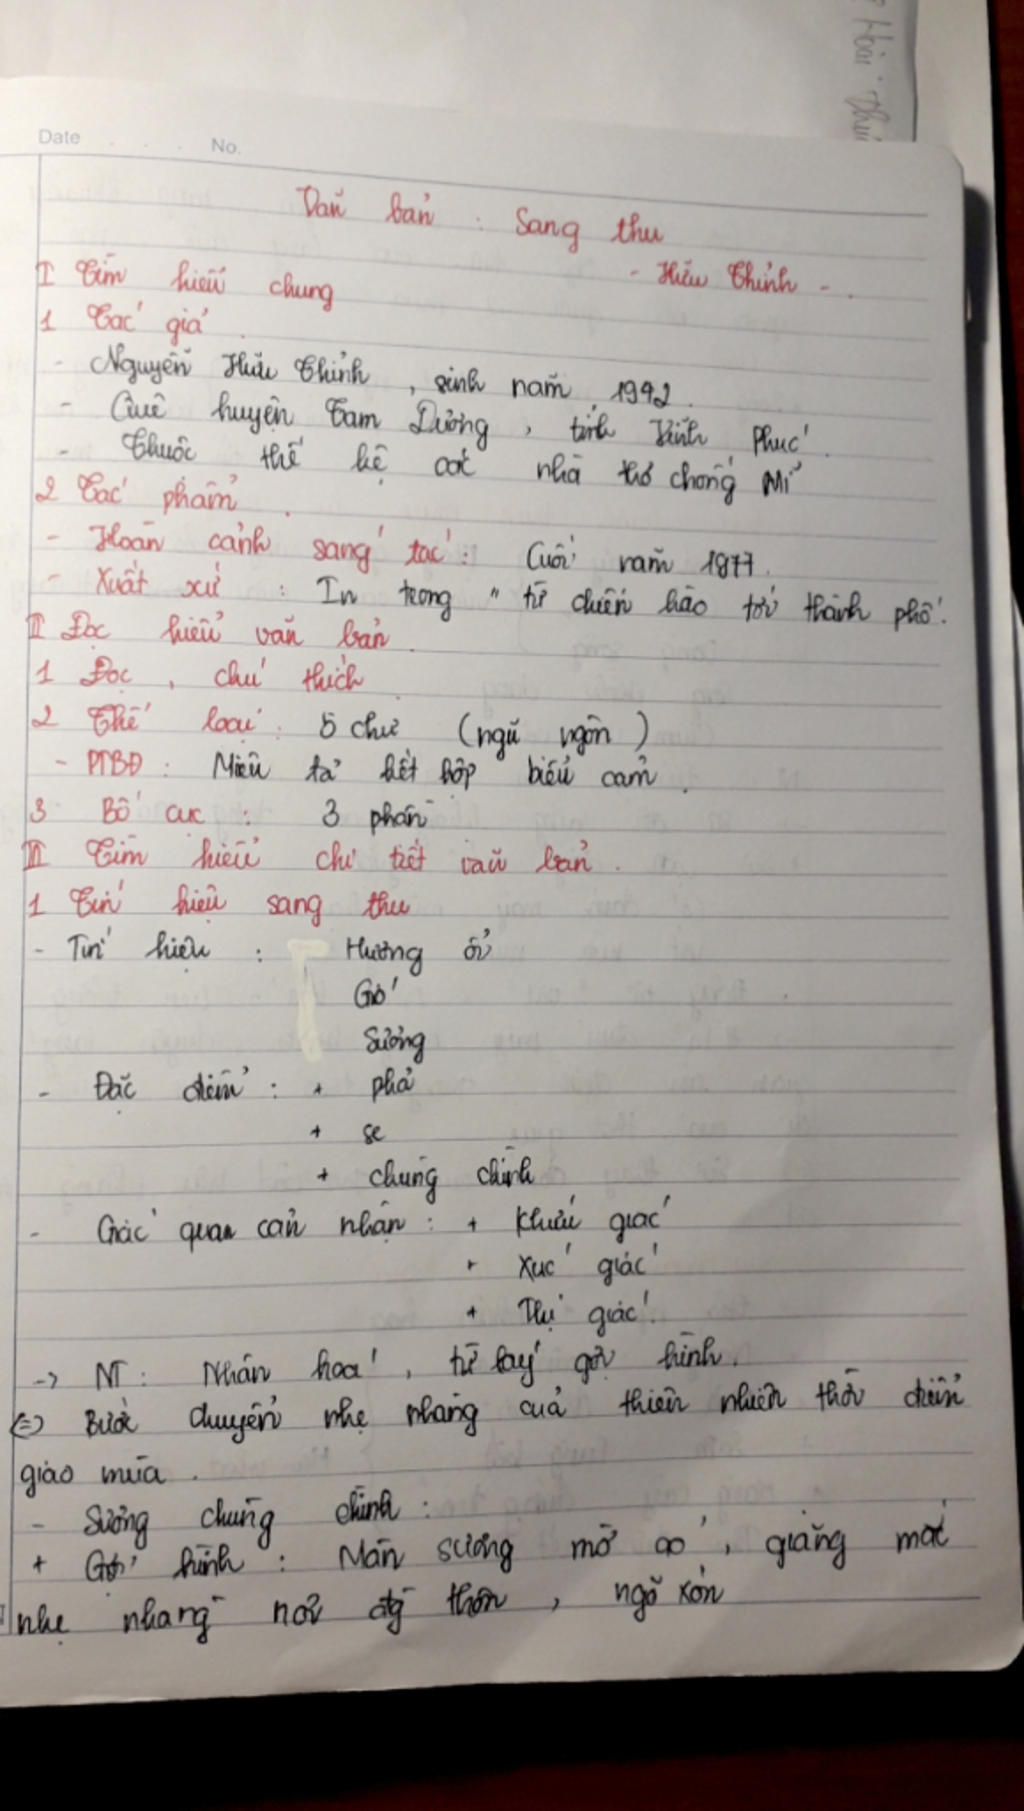 Hoài Thu
Date No.
Văn bản : Sang thu
- Hữu Thỉnh - .
I Tìm hiểu chung
1 Tác giả .
- Nguyễn Hữu Thỉnh , sinh năm 1942 .
- Quê huyện Tam Dương , tỉnh Vĩnh Phúc .
- Thuộc thế hệ các nhà thơ chống Mĩ
2 Tác phẩm .
- Hoàn cảnh sáng tác : Cuối năm 1977 .
- Xuất xứ : In trong " từ chiến hào tới thành phố .
II Đọc hiểu văn bản .
1 Đọc , chú thích .
2 Thể loại : 5 chữ ( ngũ ngôn )
- PTBĐ : Miêu tả kết hợp biểu cảm .
3 Bố cục : 3 phần
III Tìm hiểu chi tiết văn bản .
1 Tín hiệu sang thu
- Tín hiệu : Hương ổi
Gió
Sương
- Đặc điểm : + phả
+ se
+ chùng chình
- Giác quan cảm nhận : + Khứu giác
+ Xúc giác
+ Thị giác .
-> NT : Nhân hoá , từ láy gợi hình .
<=> Bước chuyển nhẹ nhàng của thiên nhiên thời điểm
giao mùa .
- Sương chùng chình :
+ Gợi hình : Màn sương mờ ảo , giăng mắc
nhẹ nhàng nơi đg thôn , ngõ xóm